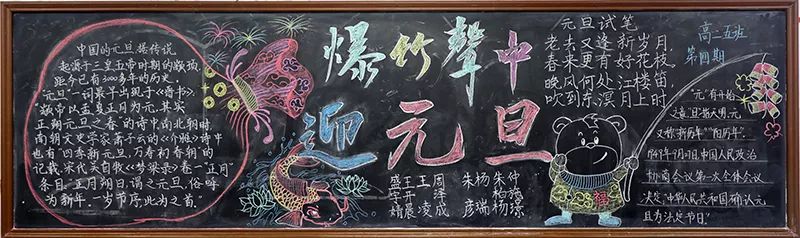 中国的元旦据传说
起源于三皇五帝时期的颛顼,
距今已有3000多年的历史。
"元旦"一词最早出现于《晋书》:
"颛帝以孟夏正月为元,其实
正朔元旦之春"的诗中。南北朝时,
南朝文学家萧子云的《介雅》诗中
也有"四季新元旦,万寿初春朝"的
记载。宋代吴自牧《梦粱录》卷一"正月"
条目:"正月朔日,谓之元旦,俗呼
为新年。一岁节序,此为之首。"
爆竹聲中
迎元旦
元旦试笔
老去又逢新岁月,
春来更有好花枝。
晚风何处江楼笛,
吹到东溟月上时。
高二五班
第四期
"元"有开始
之意,"旦"指天明,元
又称"新历年""阳历年"。
1949年9月27日,中国人民政治
协商会议第一次全体会议
决定"中华人民共和国"确认元
旦为法定节日。
福
盛宇婧
王开晨
王凌
周泽成
朱彦
杨瑞
朱柏杨
仲璟